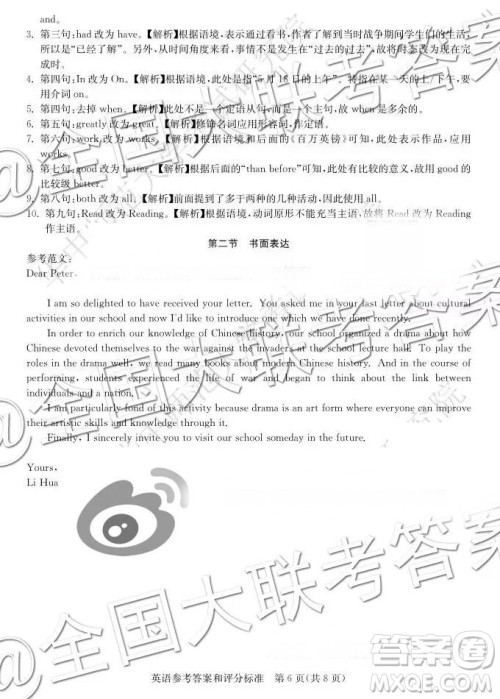 and。
3. 第三句:had改为have。【解析】根据语境,表示通过看书,作者们了解到当时战争期间学生们的生活,
所以是“已经了解”。从时间角度来看,事情不是发生在“过去的过去”,故将时态改为现在完
成时。
4. 第四句:In改为On。【解析】根据语境,此处是指“5月18日的上午”。特指在某一天的上/下午,要
用介词on。
5. 第四句:去掉when。【解析】此处不是一个定语从句,而是一个简单句,故when是多余的。
6. 第五句:greatly改为great。【解析】修饰名词应用形容词,作定语。
7. 第六句:work改为works。【解析】根据语境和后面的《百万英镑》可知,此处表示作品,应用
works。
8. 第七句:good改为better。【解析】根据后面的“than before”可知,此处有比较的意义,故用good的
比较级better。
9. 第八句:both改为all。【解析】前面提到了多于两种的几种活动,因此使用all。
10. 第九句:Read改为Reading。【解析】根据语境,动词原形不能充当主语,故将Read改为Reading
作主语。
第二节 书面表达
参考范文:
Dear Peter,
I am so delighted to have received your letter. You asked me in your last letter about cultural
activities in our school and now I'd like to introduce one which we have done recently.
In order to enrich our knowledge of Chinese history, our school organized a drama about how
Chinese devoted themselves to the war against the invaders at the school lecture hall. To play the
roles in the drama well, we read many books about modern Chinese history. And in the course of
performing, students experienced the life of war and began to think about the link between
individuals and a nation.
I am particularly fond of this activity because drama is an art form where everyone can improve
their artistic skills and knowledge through it.
Finally, I sincerely invite you to visit our school someday in the future.
Yours,
Li Hua
@全国大联考答案
@全国大联考答案
@全国大联考答案
英语参考答案和评分标准 第6页(共8页)
答案圈
MXQE.COM